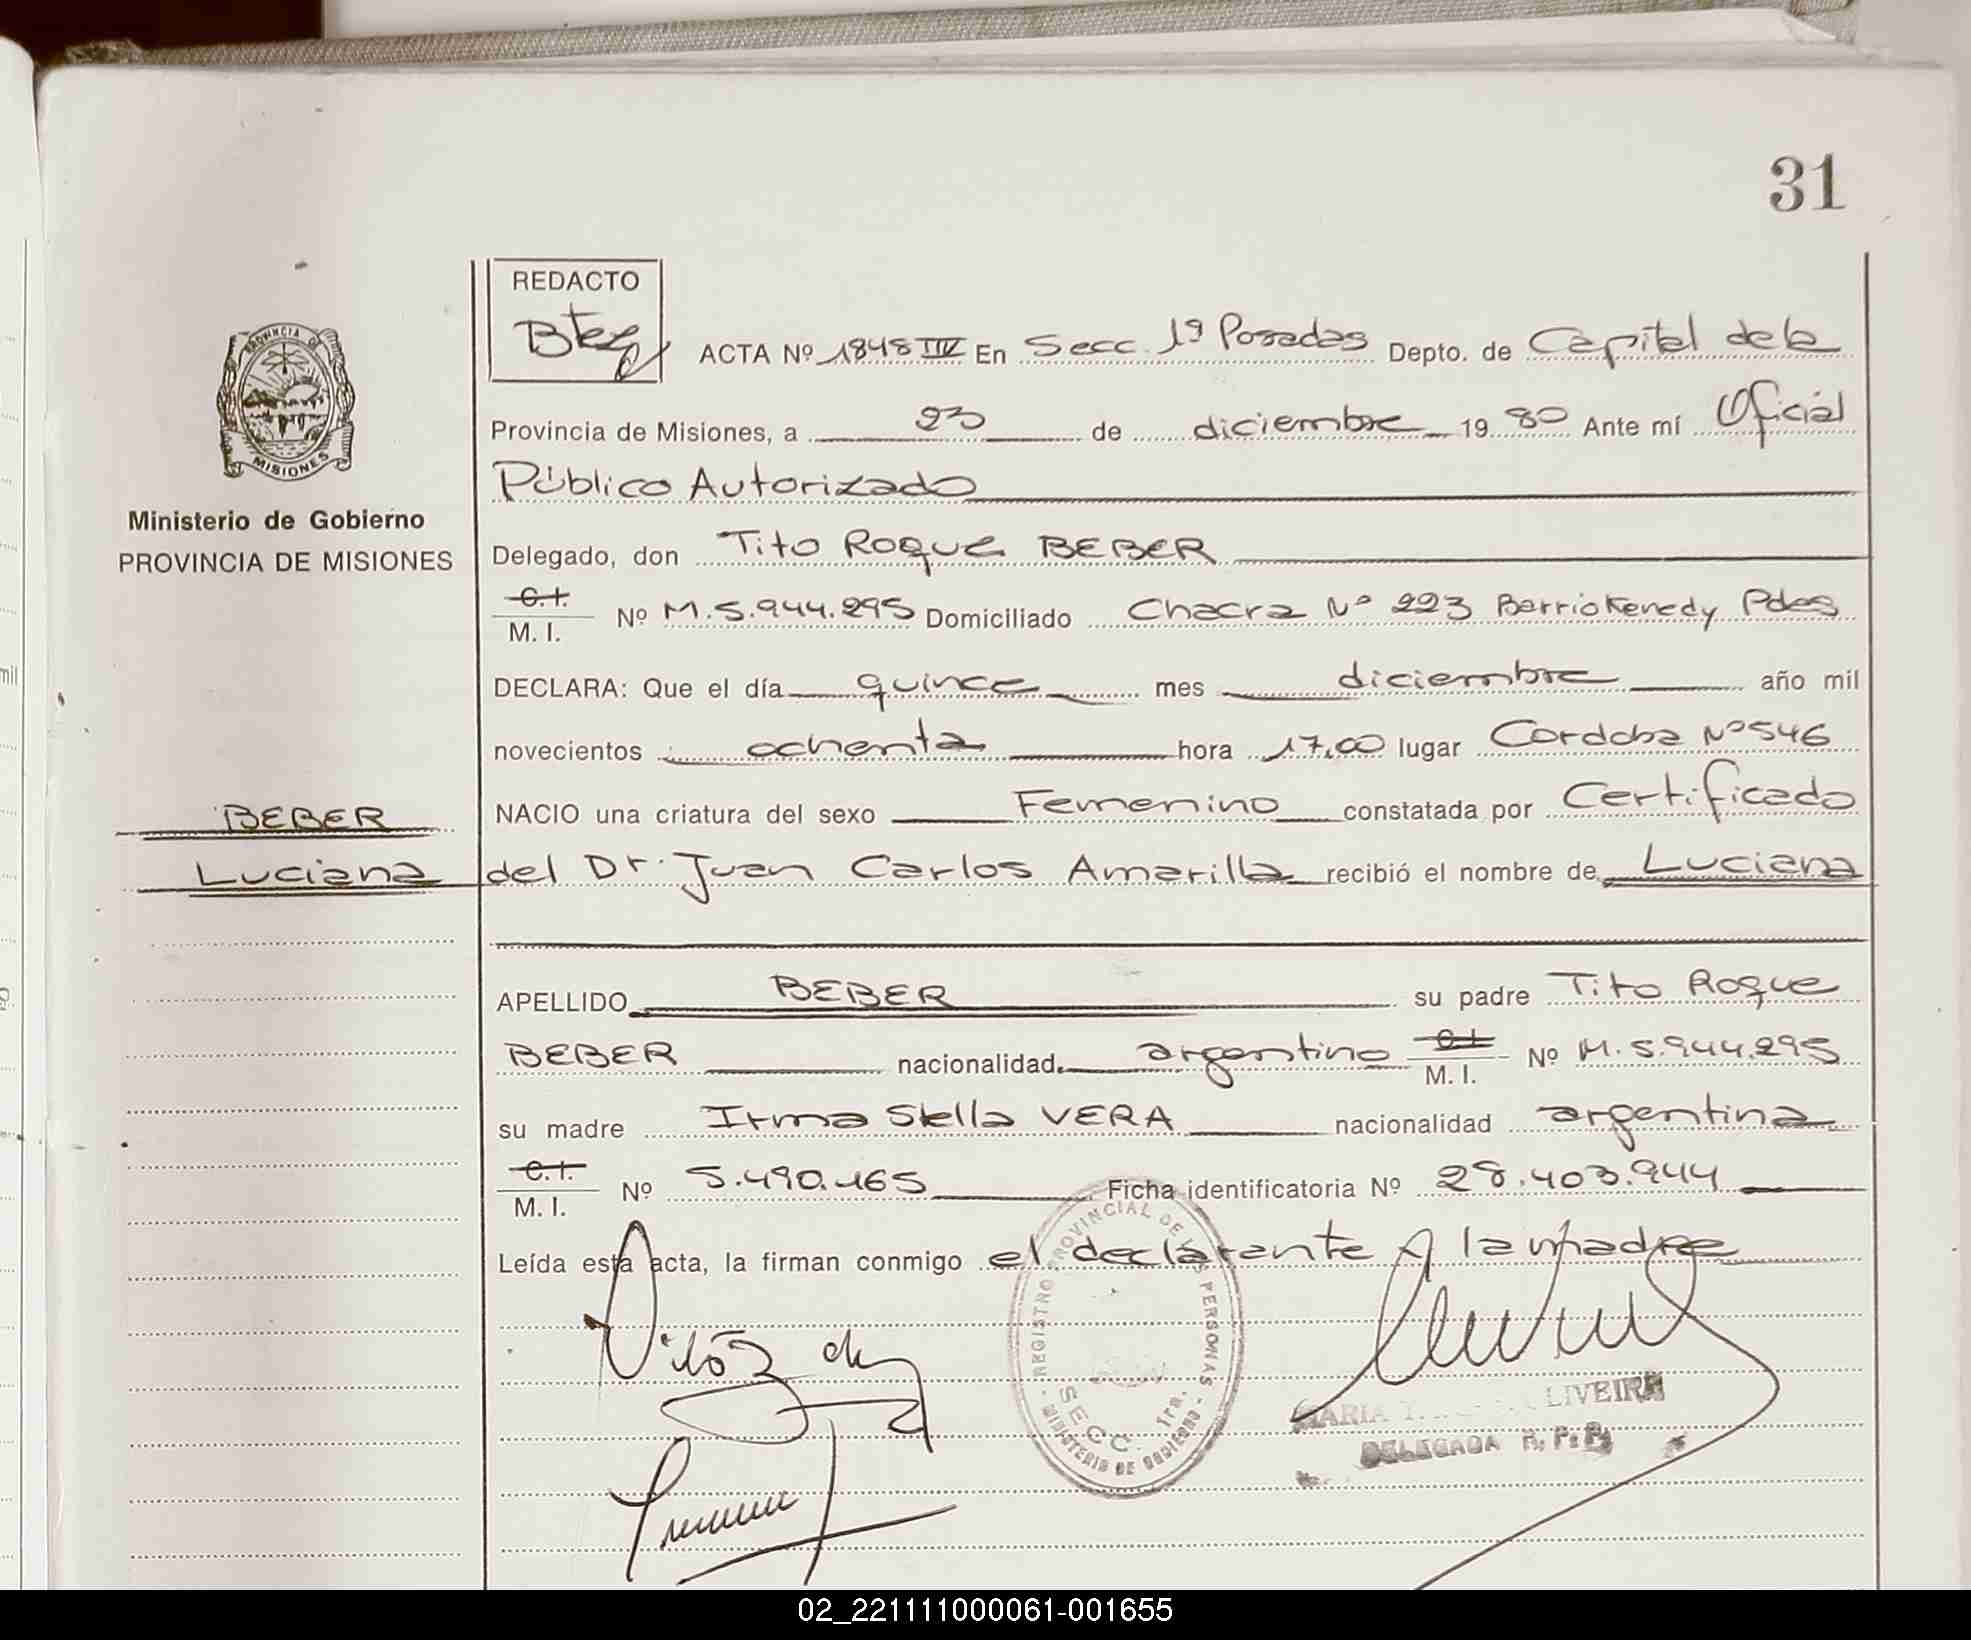 31
REDACTO
ACTA Nº 1848 IIIV En Secc. 1ª Posadas Depto. de Capital de la
Provincia de Misiones, a 23 de diciembre 19 80 Ante mí Oficial
Público Autorizado
PROVINCIA DE
MISIONES
Ministerio de Gobierno
PROVINCIA DE MISIONES
Delegado, don Tito Roque BEBER
C.I.
M. I. Nº M.5.944.295 Domiciliado Chacra Nº 223 Barrio Kenedy Pdas
DECLARA: Que el día quince mes diciembre año mil
novecientos ochenta hora 17,00 lugar Cordoba Nº 546
BEBER
Luciana
NACIO una criatura del sexo Femenino constatada por Certificado
del Dr. Juan Carlos Amarilla recibió el nombre de Luciana
APELLIDO BEBER su padre Tito Roque
BEBER nacionalidad argentino C.I. M. I. Nº M.5.944.295
su madre Irma Stella VERA nacionalidad argentina
C.I.
M. I. Nº 5.490.165 Ficha identificatoria Nº 28.403.944
Leída esta acta, la firman conmigo el declarante y la madre
REGISTRO PROVINCIAL DE LAS PERSONAS
SECC. 1ra.
MINISTERIO DE GOBIERNO
MARIA LIVEIRA
DELEGADA R. P. P.
mil
02_221111000061-001655